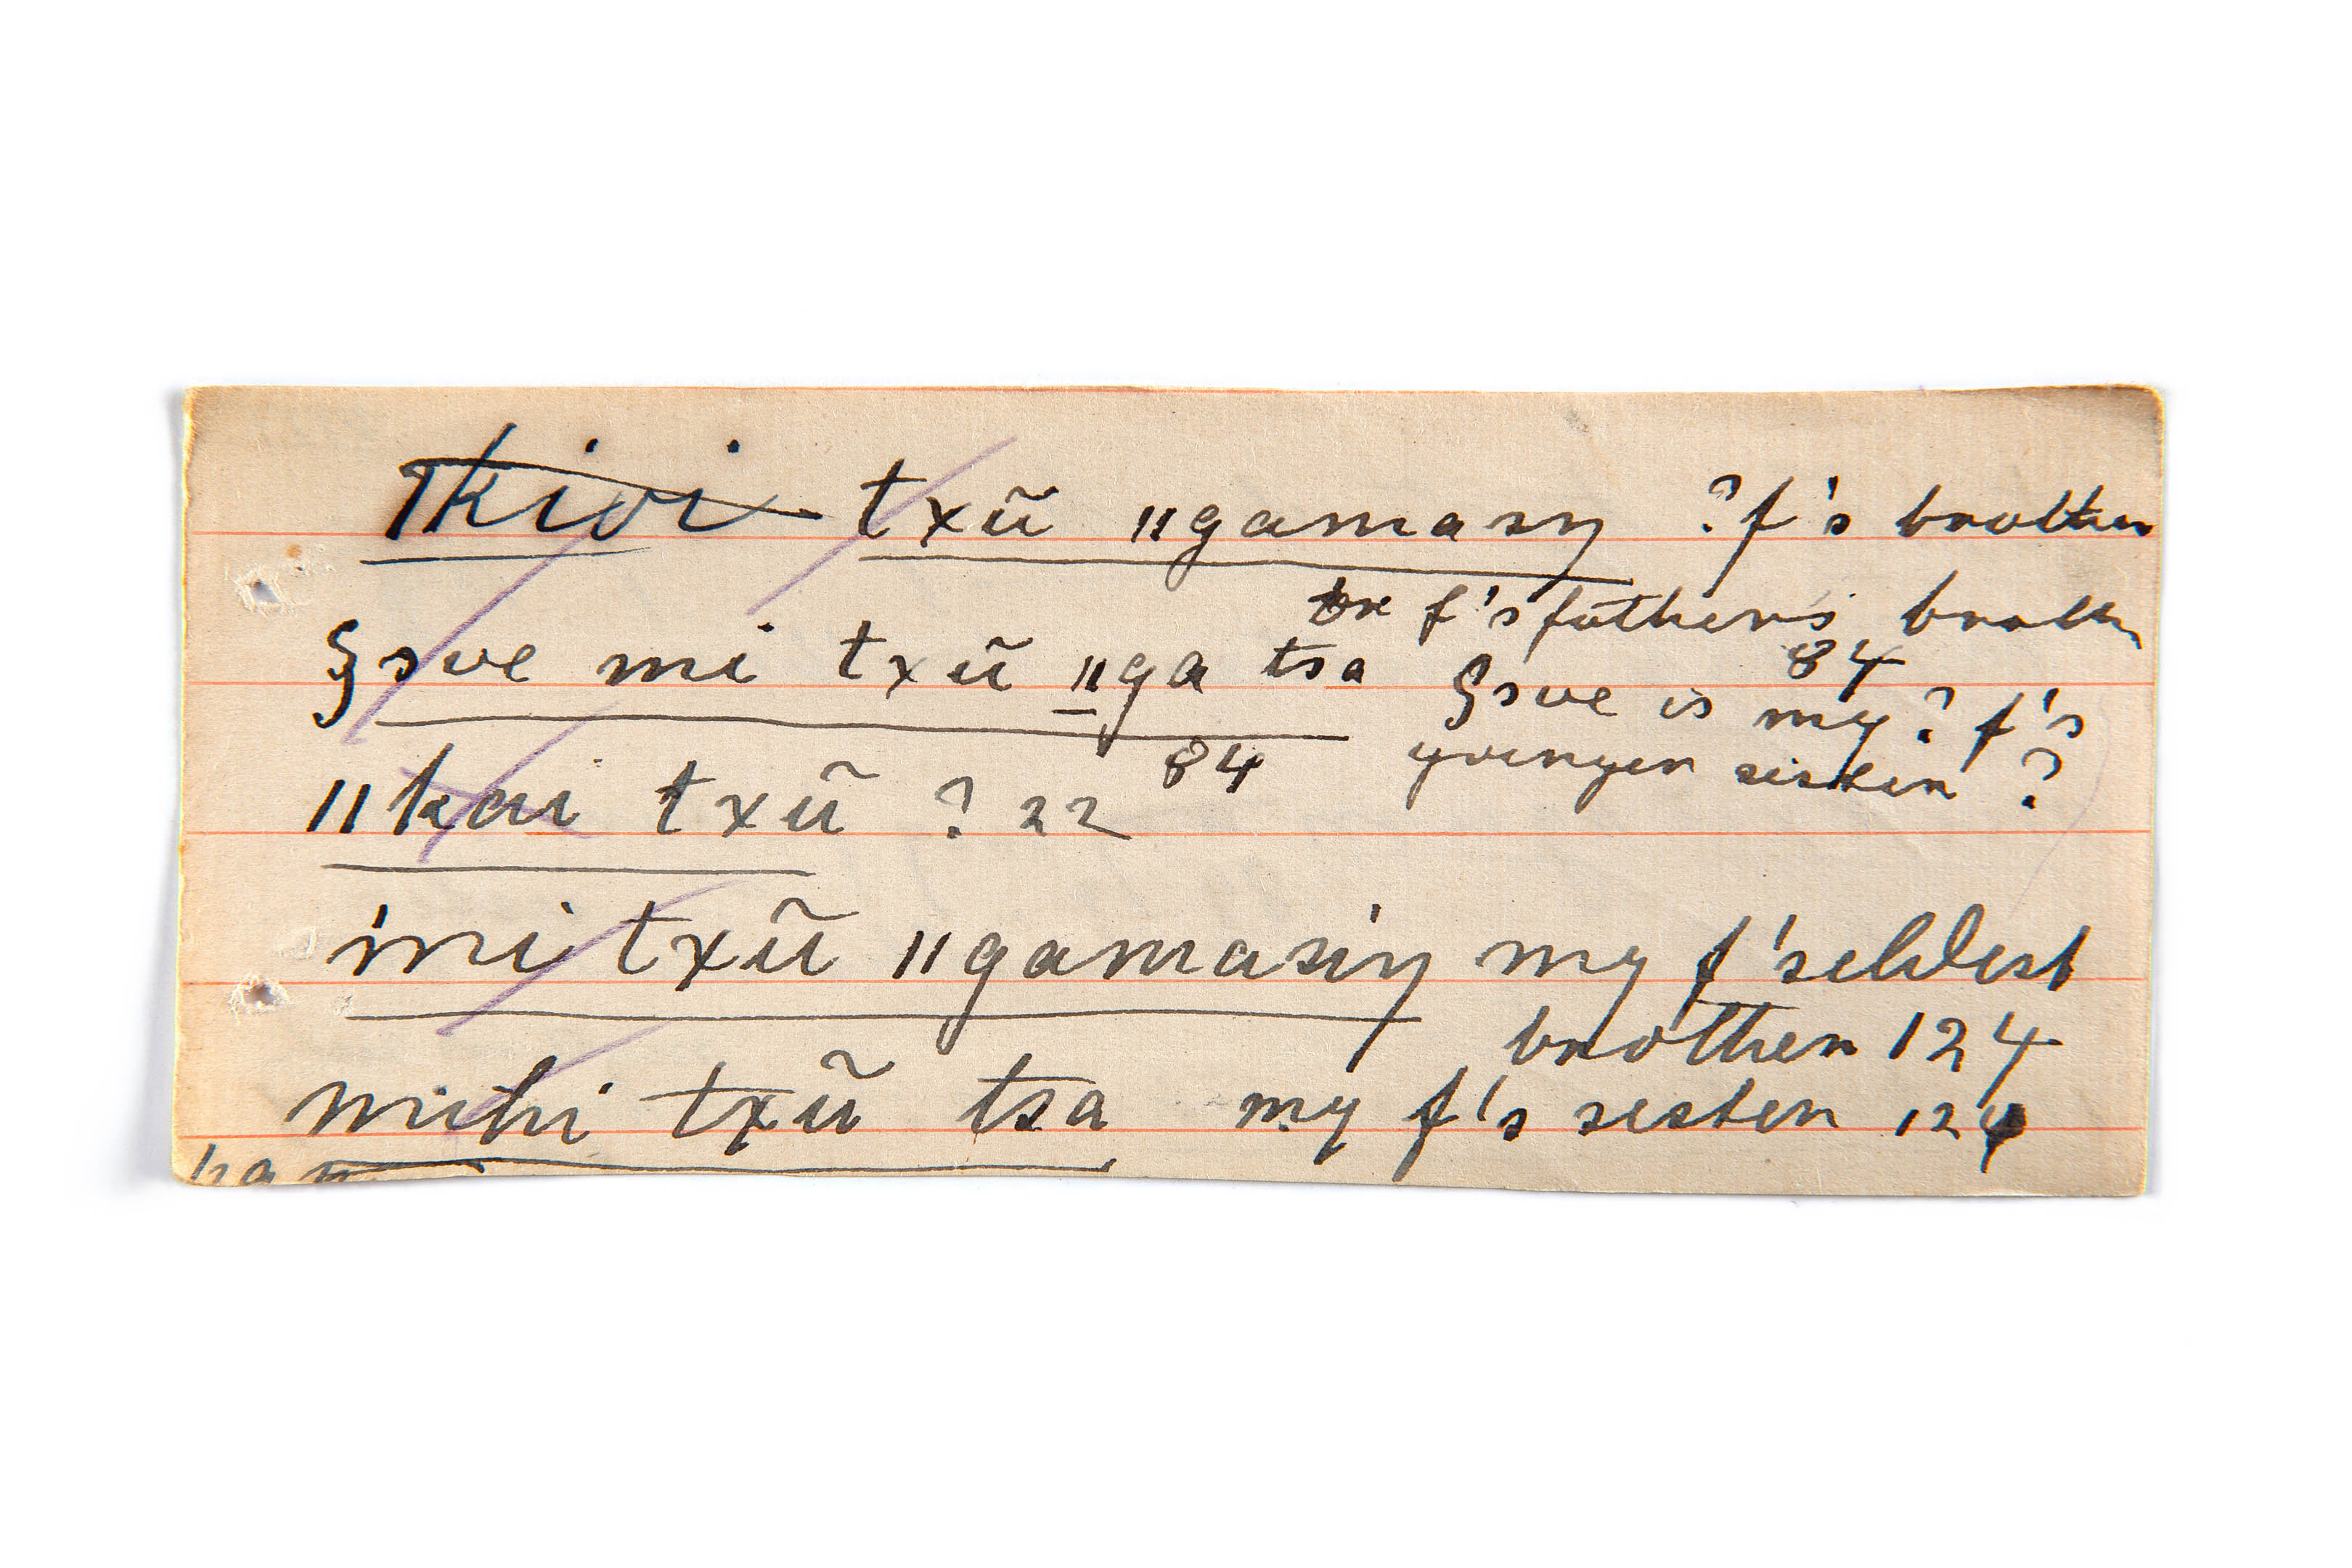 Ikivi txũ ǁgamasŋ ?f's brother
or f's father's brother
84
ʃsve mi txũ ǁga tsa ʃsve is my? f's
84 younger sister ?
ǁkai txũ ? 22
mi txũ ǁgamasiŋ my f's eldest
brother 124
mihi txũ tsa my f's sister 124